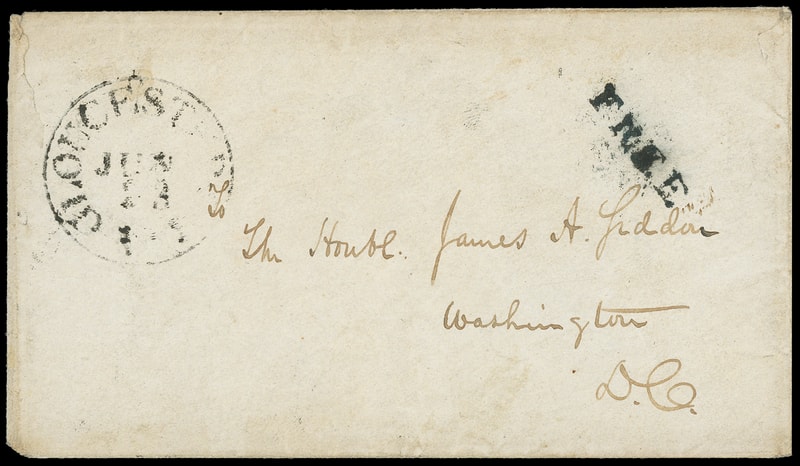 GLOUCESTER
JUN
FREE
To
The Honbl. James A. Seddon
Washington
D.C.